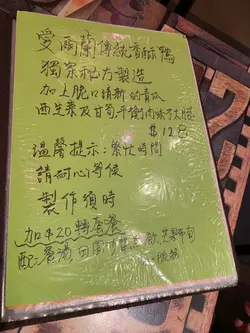 愛爾蘭傳統香酥鴨
獨家秘方製造
加上脆口清新的青瓜
西生菜及甘筍平衡肉味之大膩
$128
溫馨提示:繁忙時間
請耐心等侯
製作須時
加$20轉套餐
配:餐湯